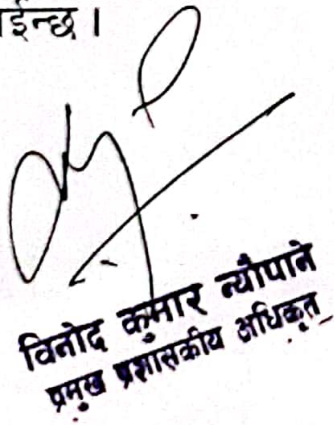 ईन्छ ।
विनोद कुमार न्यौपाने
प्रमुख प्रशासकीय अधिकृत